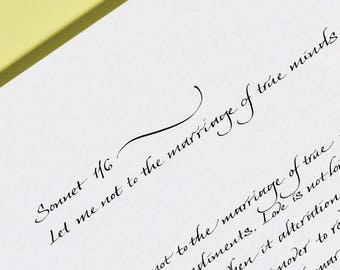 Sonnet 116
Let me not to the marriage of true minds
not to the marriage of true
ediments. Love is not lo
hen it alteration
mover to re
mar